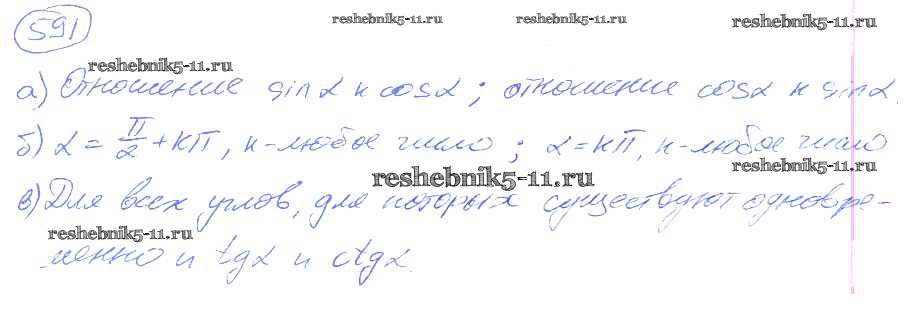 591
reshebnik5-11.ru
reshebnik5-11.ru
reshebnik5-11.ru
reshebnik5-11.ru
а) Отношение sinα к cosα; отношение cosα к sinα.
б) α = π/2 + кπ, к-любое число; α = кπ, к-любое число
reshebnik5-11.ru
reshebnik5-11.ru
в) Для всех углов, для которых существуют одновре-
reshebnik5-11.ru
менно и tgα и ctgα.